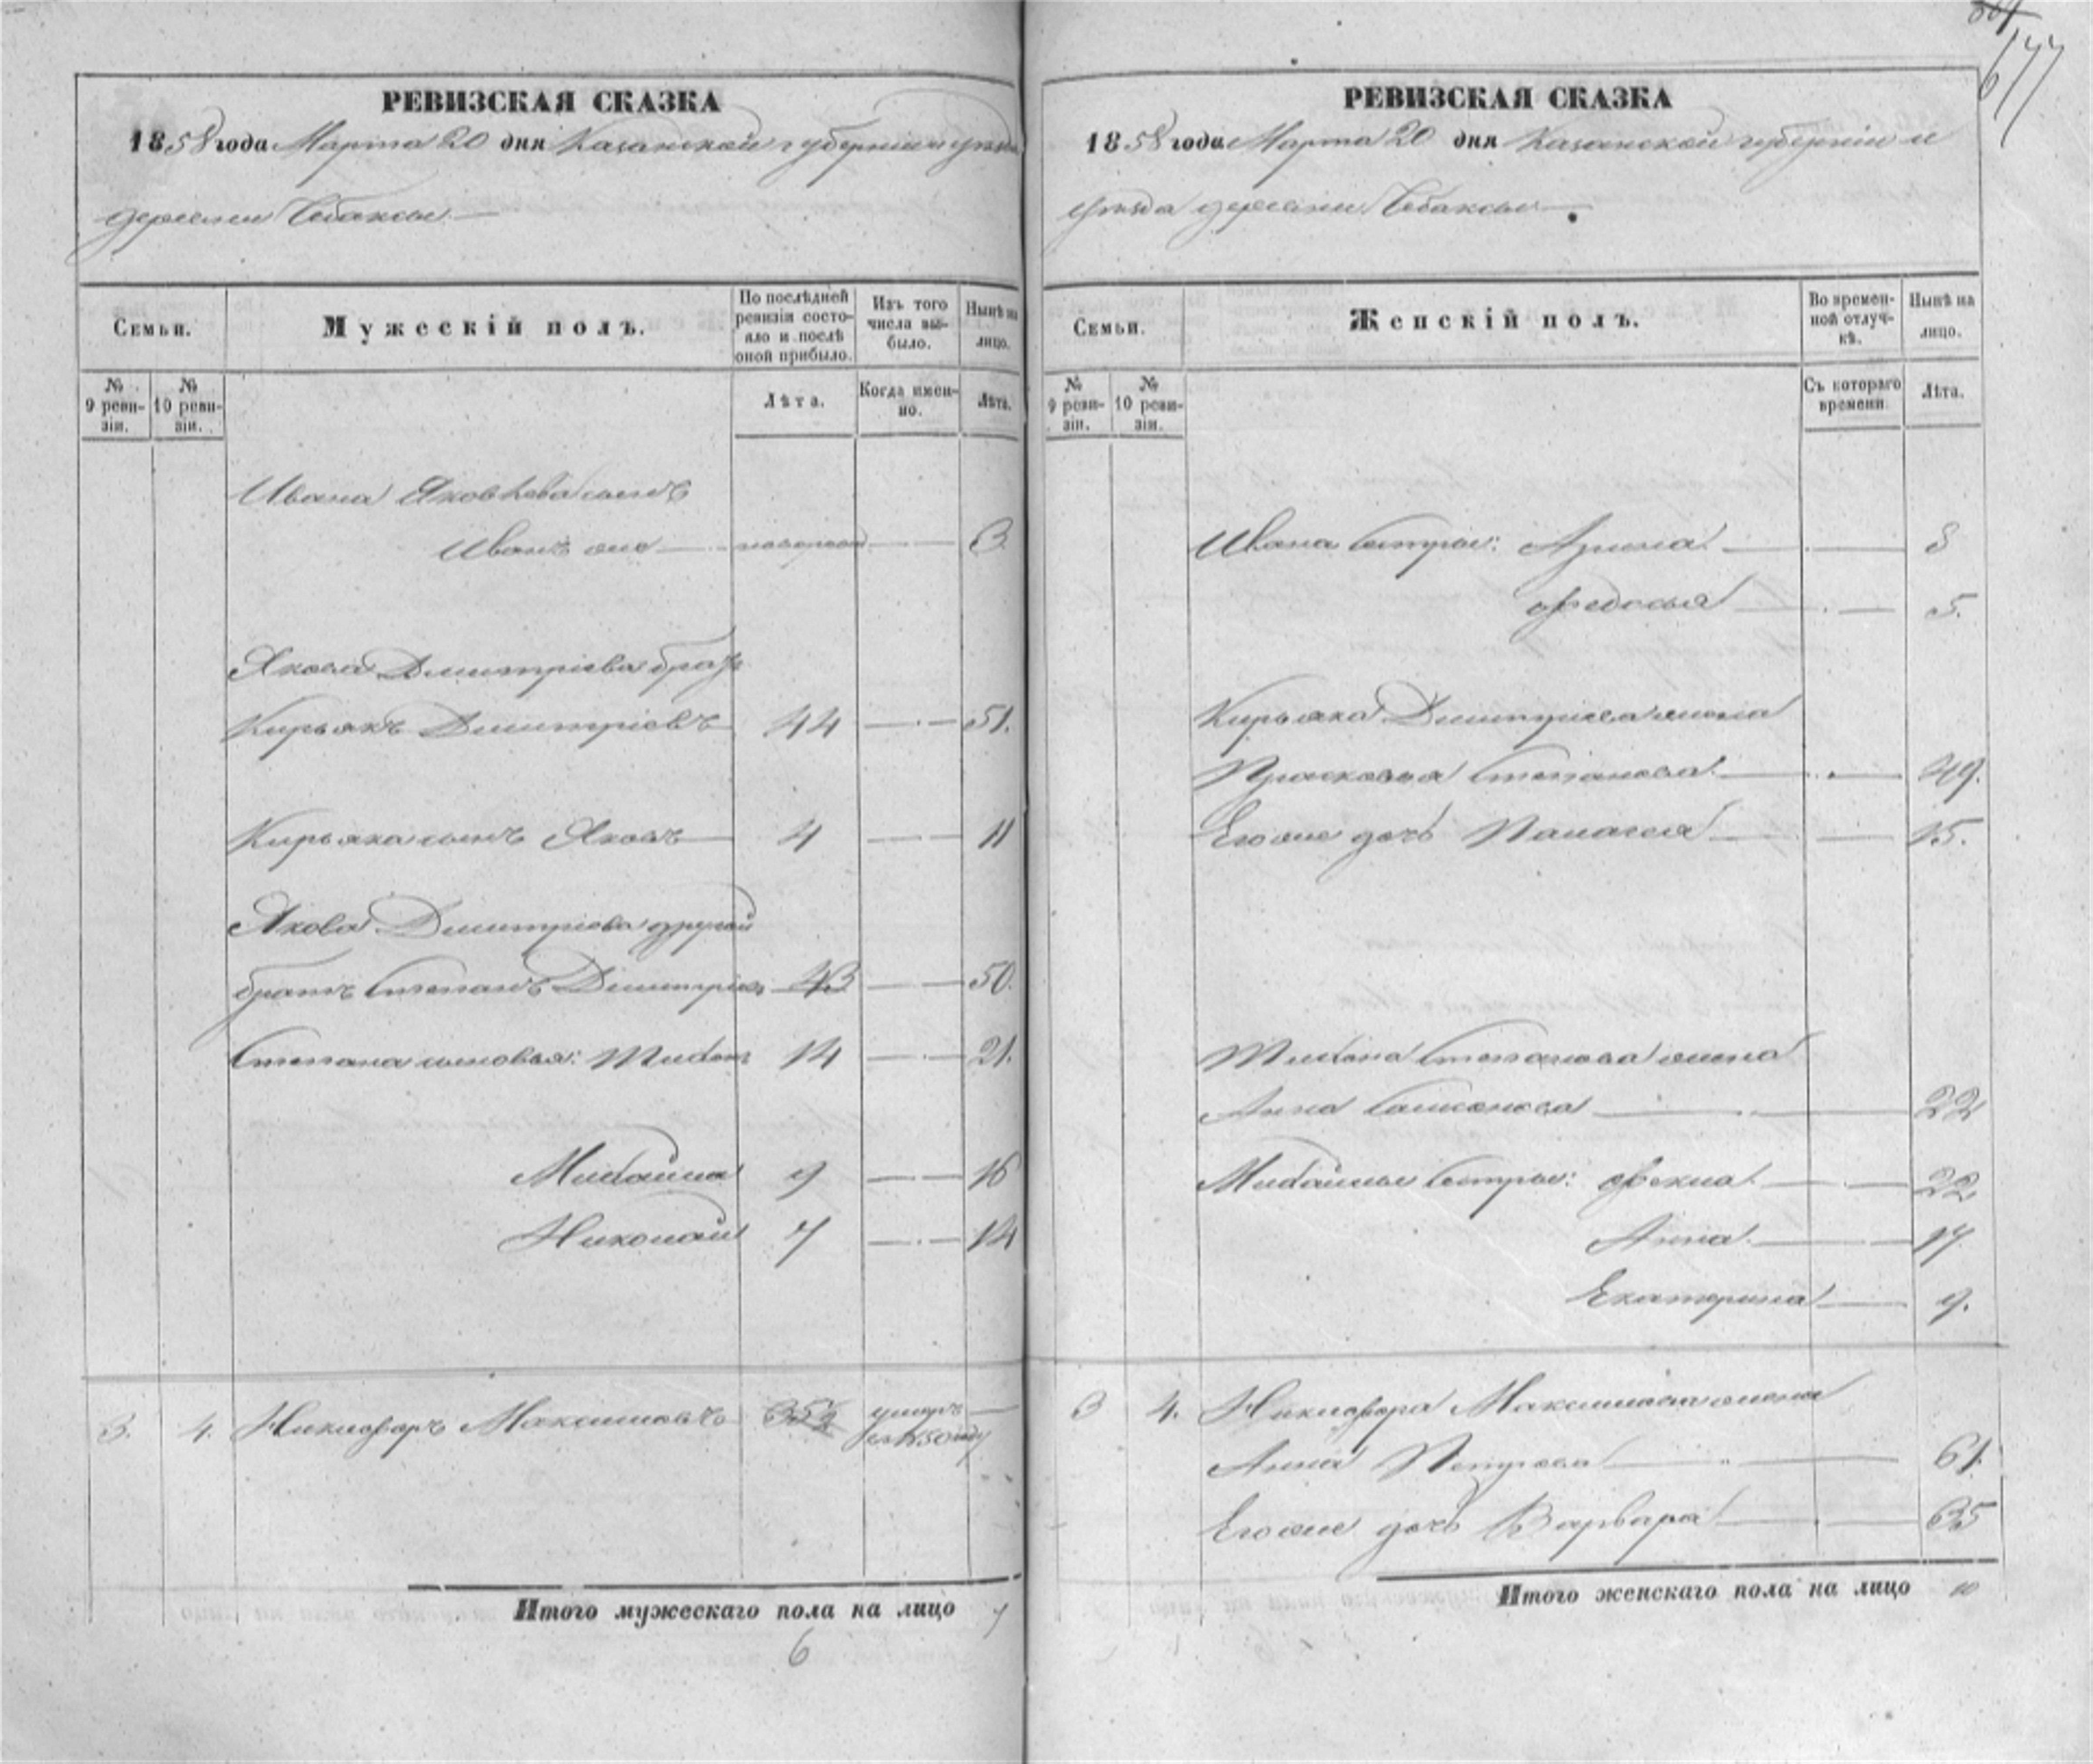 677
РЕВИЗСКАЯ СКАЗКА
1858 года Марта 20 дня Казанской губернии и уезда
деревни Чебаксы.
Семьи.
Мужескій полъ.
По послѣдней ревизіи состояло и послѣ оной прибыло.
Изъ того числа выбыло.
Нынѣ на лицо.
№ 9 ревизіи.
№ 10 ревизіи.
Лѣта.
Когда именно.
Лѣта.
Ивана Яковлева сынъ
Иванъ же — — 3
Якова Димитріева братъ
Кирьякъ Димитріевъ 44 — 51.
Кирьяка сынъ Яковъ 4 — 11
Якова Димитріева другой
братъ Степанъ Димитріевъ 43 — 50.
Степана сыновья: 14 — 21.
Михайла 9 — 16
Николай 7 — 14
3. 4. Никифоръ Максимовъ умеръ —
въ 1850 году
Итого мужескаго пола на лицо 7
6
РЕВИЗСКАЯ СКАЗКА
1858 года Марта 20 дня Казанской губерніи и
уѣзда деревни Чебаксы.
Семьи.
Женскій полъ.
Во временной отлучкѣ.
Нынѣ на лицо.
№ 9 ревизіи.
№ 10 ревизіи.
Съ котораго времени.
Лѣта.
Ивана сестры: Арина — 8
Федосья — 5.
Кирьяка Димитриева жена
Прасковья Степанова — 49.
Его же дочь Палагея — 15.
Степанова жена
Анна — 22
Михайлы сестры: Фекла — 22
Анна — 17
Екатерина — 9.
3 4. Никифора Максимова жена
Анна Петрова — 61.
Его же дочь Варвара — 35
Итого женскаго пола на лицо 10